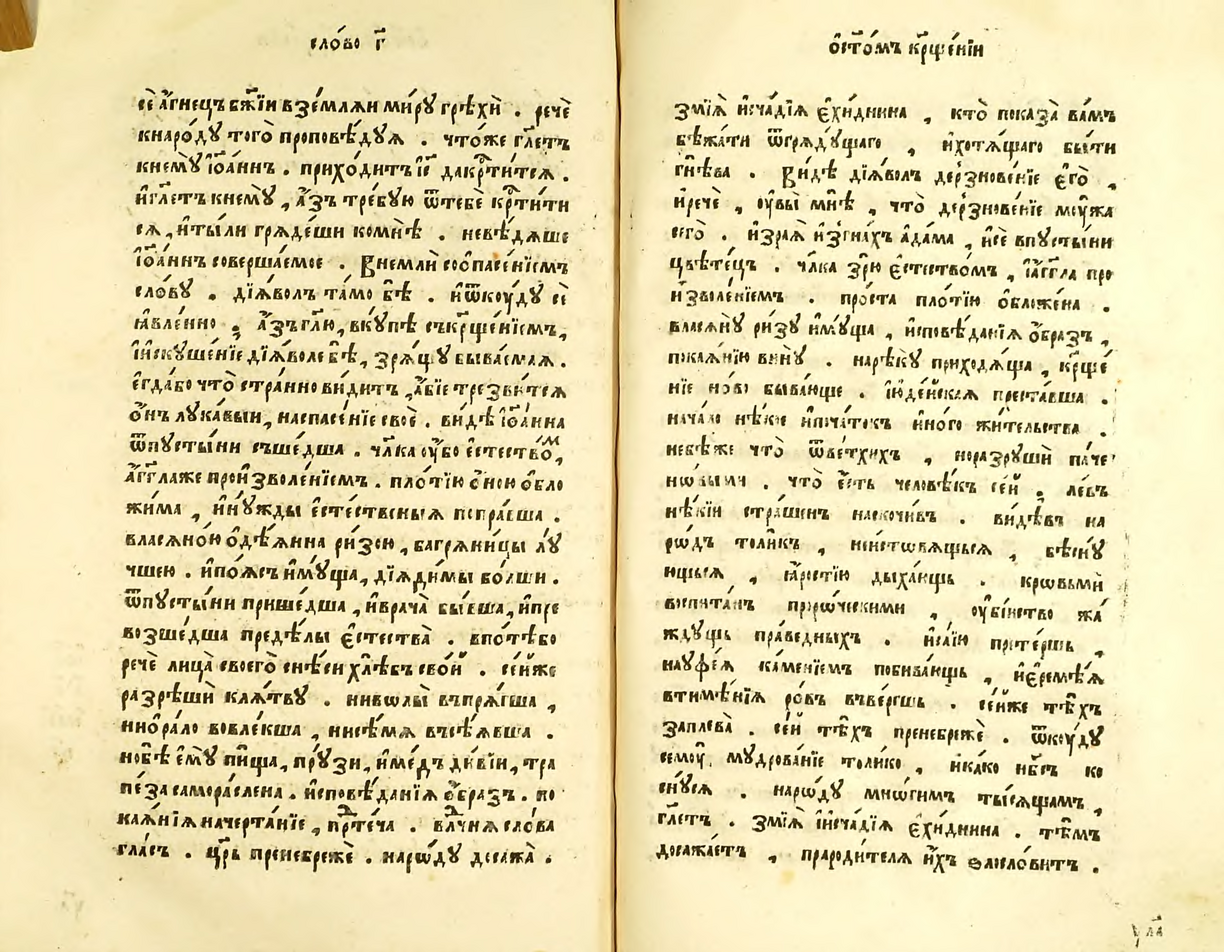 сло́во г҃
сѐ а҆́гнецъ бж҃їи взе́мляи ми́рꙋ грѣхѝ . речѐ
кнаро́дꙋ того̀ проповѣ́дꙋѧ . что́же гл҃етъ
кнемꙋ̀ і҆ѡа́ннъ . прихо́дитъ і҆с҃ дакрⷭ҇ти́тсѧ .
и҆гл҃етъ кнемꙋ̀ , а҆́зъ тре́бꙋю ѿтебѐ крⷭ҇ти́ти
сѧ , и҆ты́ли грѧде́ши комнѣ̀ . невѣ́дѧше
і҆ѡа́ннъ соверша́емое . Внемлѝ соспасе́нїемъ
сло́вꙋ . дїѧ́волъ та́мо бѣ̀ . и҆ѿкꙋ́дꙋ се
ꙗ҆вле́нно , а҆́зъ гл҃ю , вкꙋ́пѣ съкрⷳ҇е́нїемъ ,
и҆и҆скꙋше́нїе дїѧ́воле бѣ̀ , зрѧ́щꙋ быва́емаѧ .
є҆гда́бо что̀ стра́нно ви́дитъ , а҆́бїе трезви́тсѧ
о҆́нъ лꙋка́выи , наспасе́нїе своѐ . ви́дѣ і҆ѡа́нна
ѿпꙋсты́ни съше́дша . чл҃ка ᲂу҆́бо є҆стество́мъ ,
а҆́гг҃лаже прои҆зволе́нїемъ . пло́тїю о҆́ною о҆бло
жи́ма , и҆нꙋ́жды є҆сте́ственыѧ попра́вша .
власѧно́ю ѻ҆дѣ́ѧнна ри́зою , багрѧни́цы лꙋ́
чшею . и҆по́ѧсъ и҆мꙋ́ща , дїѧди́мы бо́лши .
ѿпꙋсты́ни прише́дша , и҆врача̀ бы́вша , и҆пре
возше́дша предѣ́лы є҆стества̀ . впо́тѣбо
речѐ лица̀ своего̀ снѣ́си хлѣ́бъ сво́й . се́йже
разрѣшѝ клѧ́твꙋ . нивѡлы̀ въпрѧ́гша ,
нио҆ра́ло вовле́кша , нисѣ́мѧ всѣ́ѧвша .
нобѣ̀ є҆мꙋ̀ пи́ща , прꙋ́зи , и҆ме́дъ ди́вїи , тра
пе́за самора́слена . и҆сповѣ́данїѧ о҆́бразъ . по
каѧ́нїѧ начерта́нїе , прⷣте́ча . влⷣчнѧ сло́ва
гла́съ . цр҃ь пренебрежѐ . наро́дꙋ досажа̀ .
ѻ҆ст҃о́мъ крⷳ҇е́нїи
змїѧ̑ и҆сча́дїѧ є҆хи́днина , кто̀ показа̀ ва́мъ
бѣжа́ти ѿгрѧдꙋ́щаго , и҆хотѧ́щаго бы́ти
гнѣ́ва . Ви́дѣ дїѧ́волъ дерзнове́нїе є҆го̀ ,
и҆речѐ , ᲂу҆вы̀ мнѣ̀ , что̀ дерзнове́нїе мꙋ́жа
сего̀ . и҆зраѧ̀ и҆згна́хъ а҆да́ма , и҆сѐ впꙋсты́ни
цвѣте́цъ . чл҃ка зрю̀ є҆стество́мъ , і҆а҆́гг҃ла про
и҆зволе́нїемъ . про́ста пло́тїю о҆бложе́на .
власѧ́нꙋ ри́зꙋ и҆мꙋ́ща , и҆сповѣ́данїѧ о҆́бразъ ,
покаѧ́нїю винꙋ̀ . нарѣ́кꙋ приходѧ́ща , крⷳ҇е́
нїе но́во быва́юще . і҆юде́йскаѧ преста́вша .
нача́ло нѣ́кое и҆поча́токъ и҆но́го жи́тельства .
небѣ́же что̀ ѿве́тхихъ , норазрꙋшѝ па́че
но́выми . что̀ є҆́сть человѣ́къ се́й , ле́въ
нѣ́кїи стра́шенъ наскочи́въ . ви́дѣвъ на
ро́дъ толи́къ , неи́стовѧщьсѧ , бѣснꙋ́
ющьсѧ , ꙗ҆́ростїю ды́хающь . кровьмѝ
воспита́нъ прⷪ҇ро́ческими , ᲂу҆бі́йство жа́
ждꙋщь пра́ведныхъ . и҆са́їю прете́ршь ,
наꙋфе́ѧ ка́менїемъ побива́ющь , и҆є҆ремѣ́ѧ
втимѣ́нїѧ ро́въ вве́ргшь . се́йже тѣ́хъ
заплева̀ . се́й тѣ́хъ пренебрежѐ . ѿкꙋ́дꙋ
семꙋ̀ , мꙋдрова́нїе толи́ко , и҆ка́ко нбⷭ҇ъ ко
снꙋ́сѧ . наро́дꙋ мно́гимъ ты́сѧщамъ ,
гл҃етъ . змїѧ̑ и҆и҆сча́дїѧ є҆хи́днина . тѣ́мъ
досажа́етъ , прароди́телѧ и҆́хъ ѳлосло́витъ .